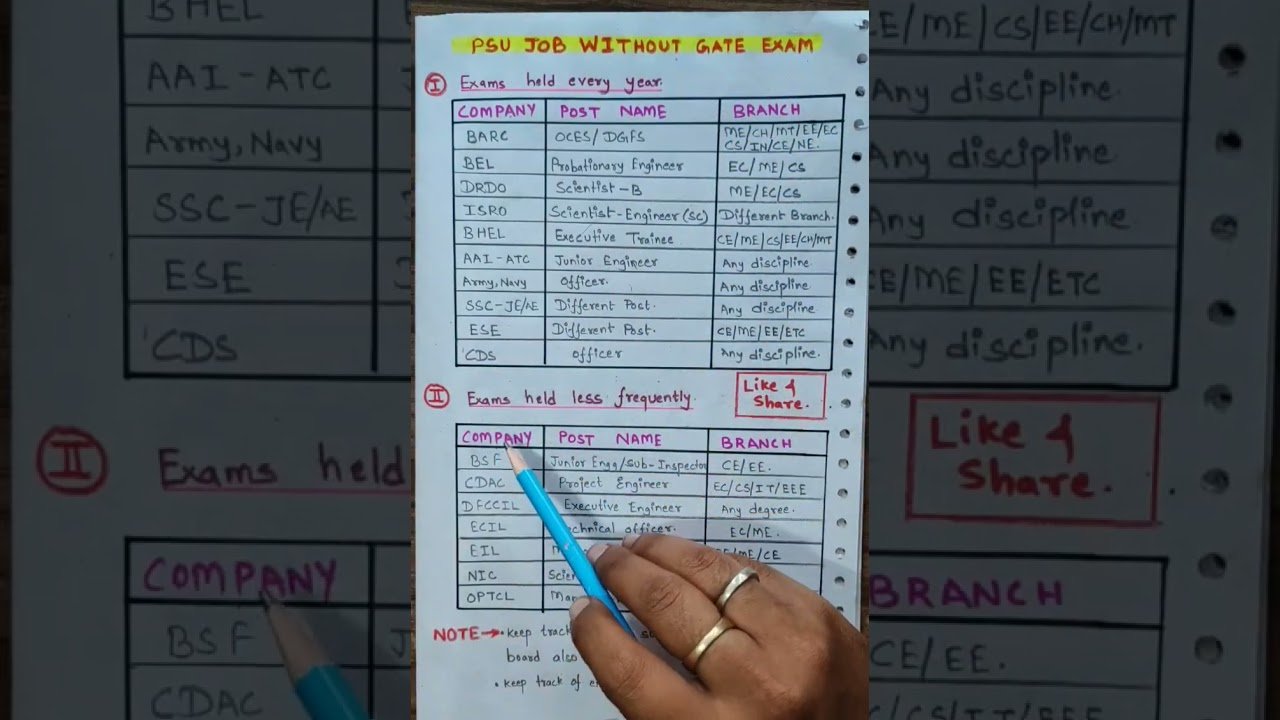 PSU JOB WITHOUT GATE EXAM
I Exams held every year.
COMPANY POST NAME BRANCH
BARC OCES/DGFS ME/CH/MT/EE/EC CS/IN/CE/NE.
BEL Probationary Engineer EC/ME/CS
DRDO Scientist-B ME/EC/CS
ISRO Scientist-Engineer (SC) Different Branch.
BHEL Executive Trainee CE/ME/CS/EE/CH/MT
AAI-ATC Junior Engineer Any discipline
Army, Navy Officer. Any discipline
SSC-JE/AE Different Post. Any discipline
ESE Different Post. CE/ME/EE/ETC
CDS officer Any discipline.
Like & Share.
II Exams held less frequently.
COMPANY POST NAME BRANCH
BSF Junior Engg/Sub-Inspector CE/EE.
CDAC Project Engineer EC/CS/IT/EEE
DFCCIL Executive Engineer Any degree.
ECIL officer. EC/ME.
EIL ME/CE
NIC
OPTCL
NOTE → • keep track
board also
• keep track of